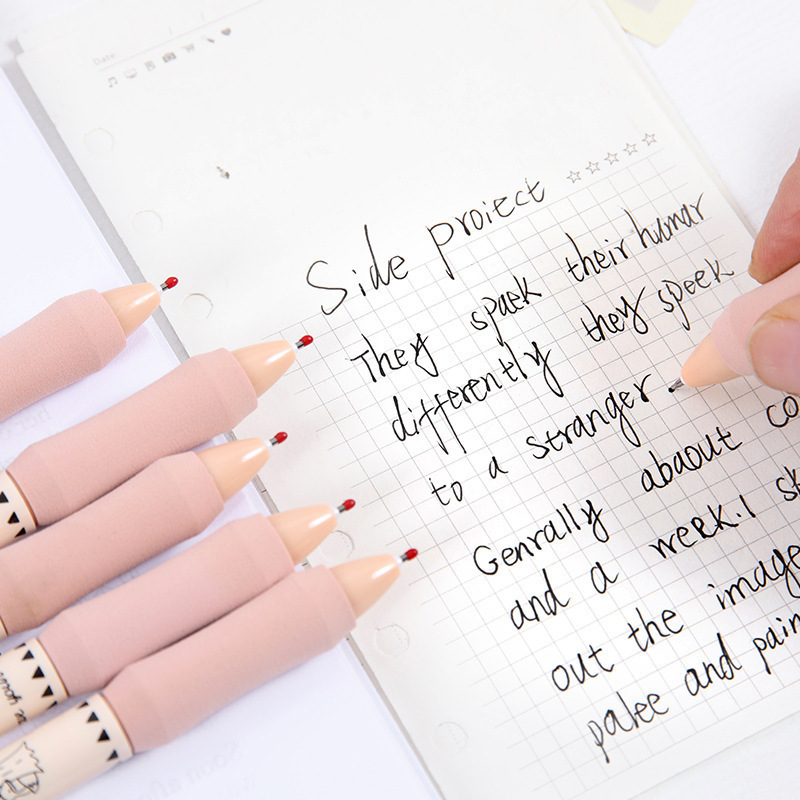 Date:
Side proiect
They spaek their humar
differently they speek
to a stranger
Genrally abaout co
and a werk.I sk
out the image
palee and pain